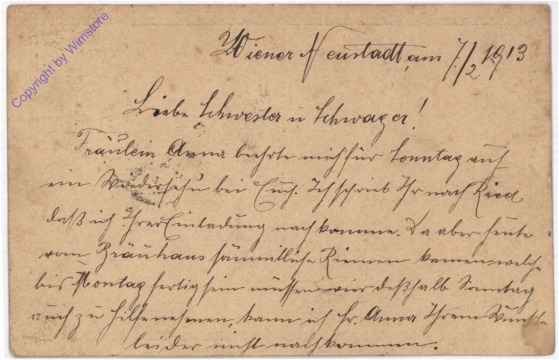 Copyright by Wimstore
Wiener Neustadt, am 7./2. 1913
Liebe Schwester u Schwager!
Fräulein Anna beehrte mich für Sonntag auf
ein Wiedersehn bei Euch. Ich schrieb Ihr nach Ried
daß ich Ihrer Einladung nachkomme. Da aber heute
vom Bräuhaus sämmtliche Riemen kamen welche
bis Montag fertig sein müssen wir deßhalb Sonntag
auch zu Hilfe nehmen, kann ich Fr. Anna Ihrem Wunsch
leider nicht nachkommen.